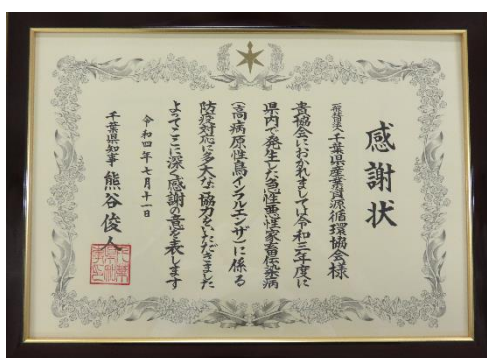 感謝状
一般社団法人千葉県産業資源循環協会様
貴協会におかれましては令和三年度に
県内で発生した急性悪性家畜伝染病
(高病原性鳥インフルエンザ)に係る
防疫対応に多大なご協力をいただきました
よってここに深く感謝の意を表します
令和四年七月十一日
千葉県知事 熊谷俊人